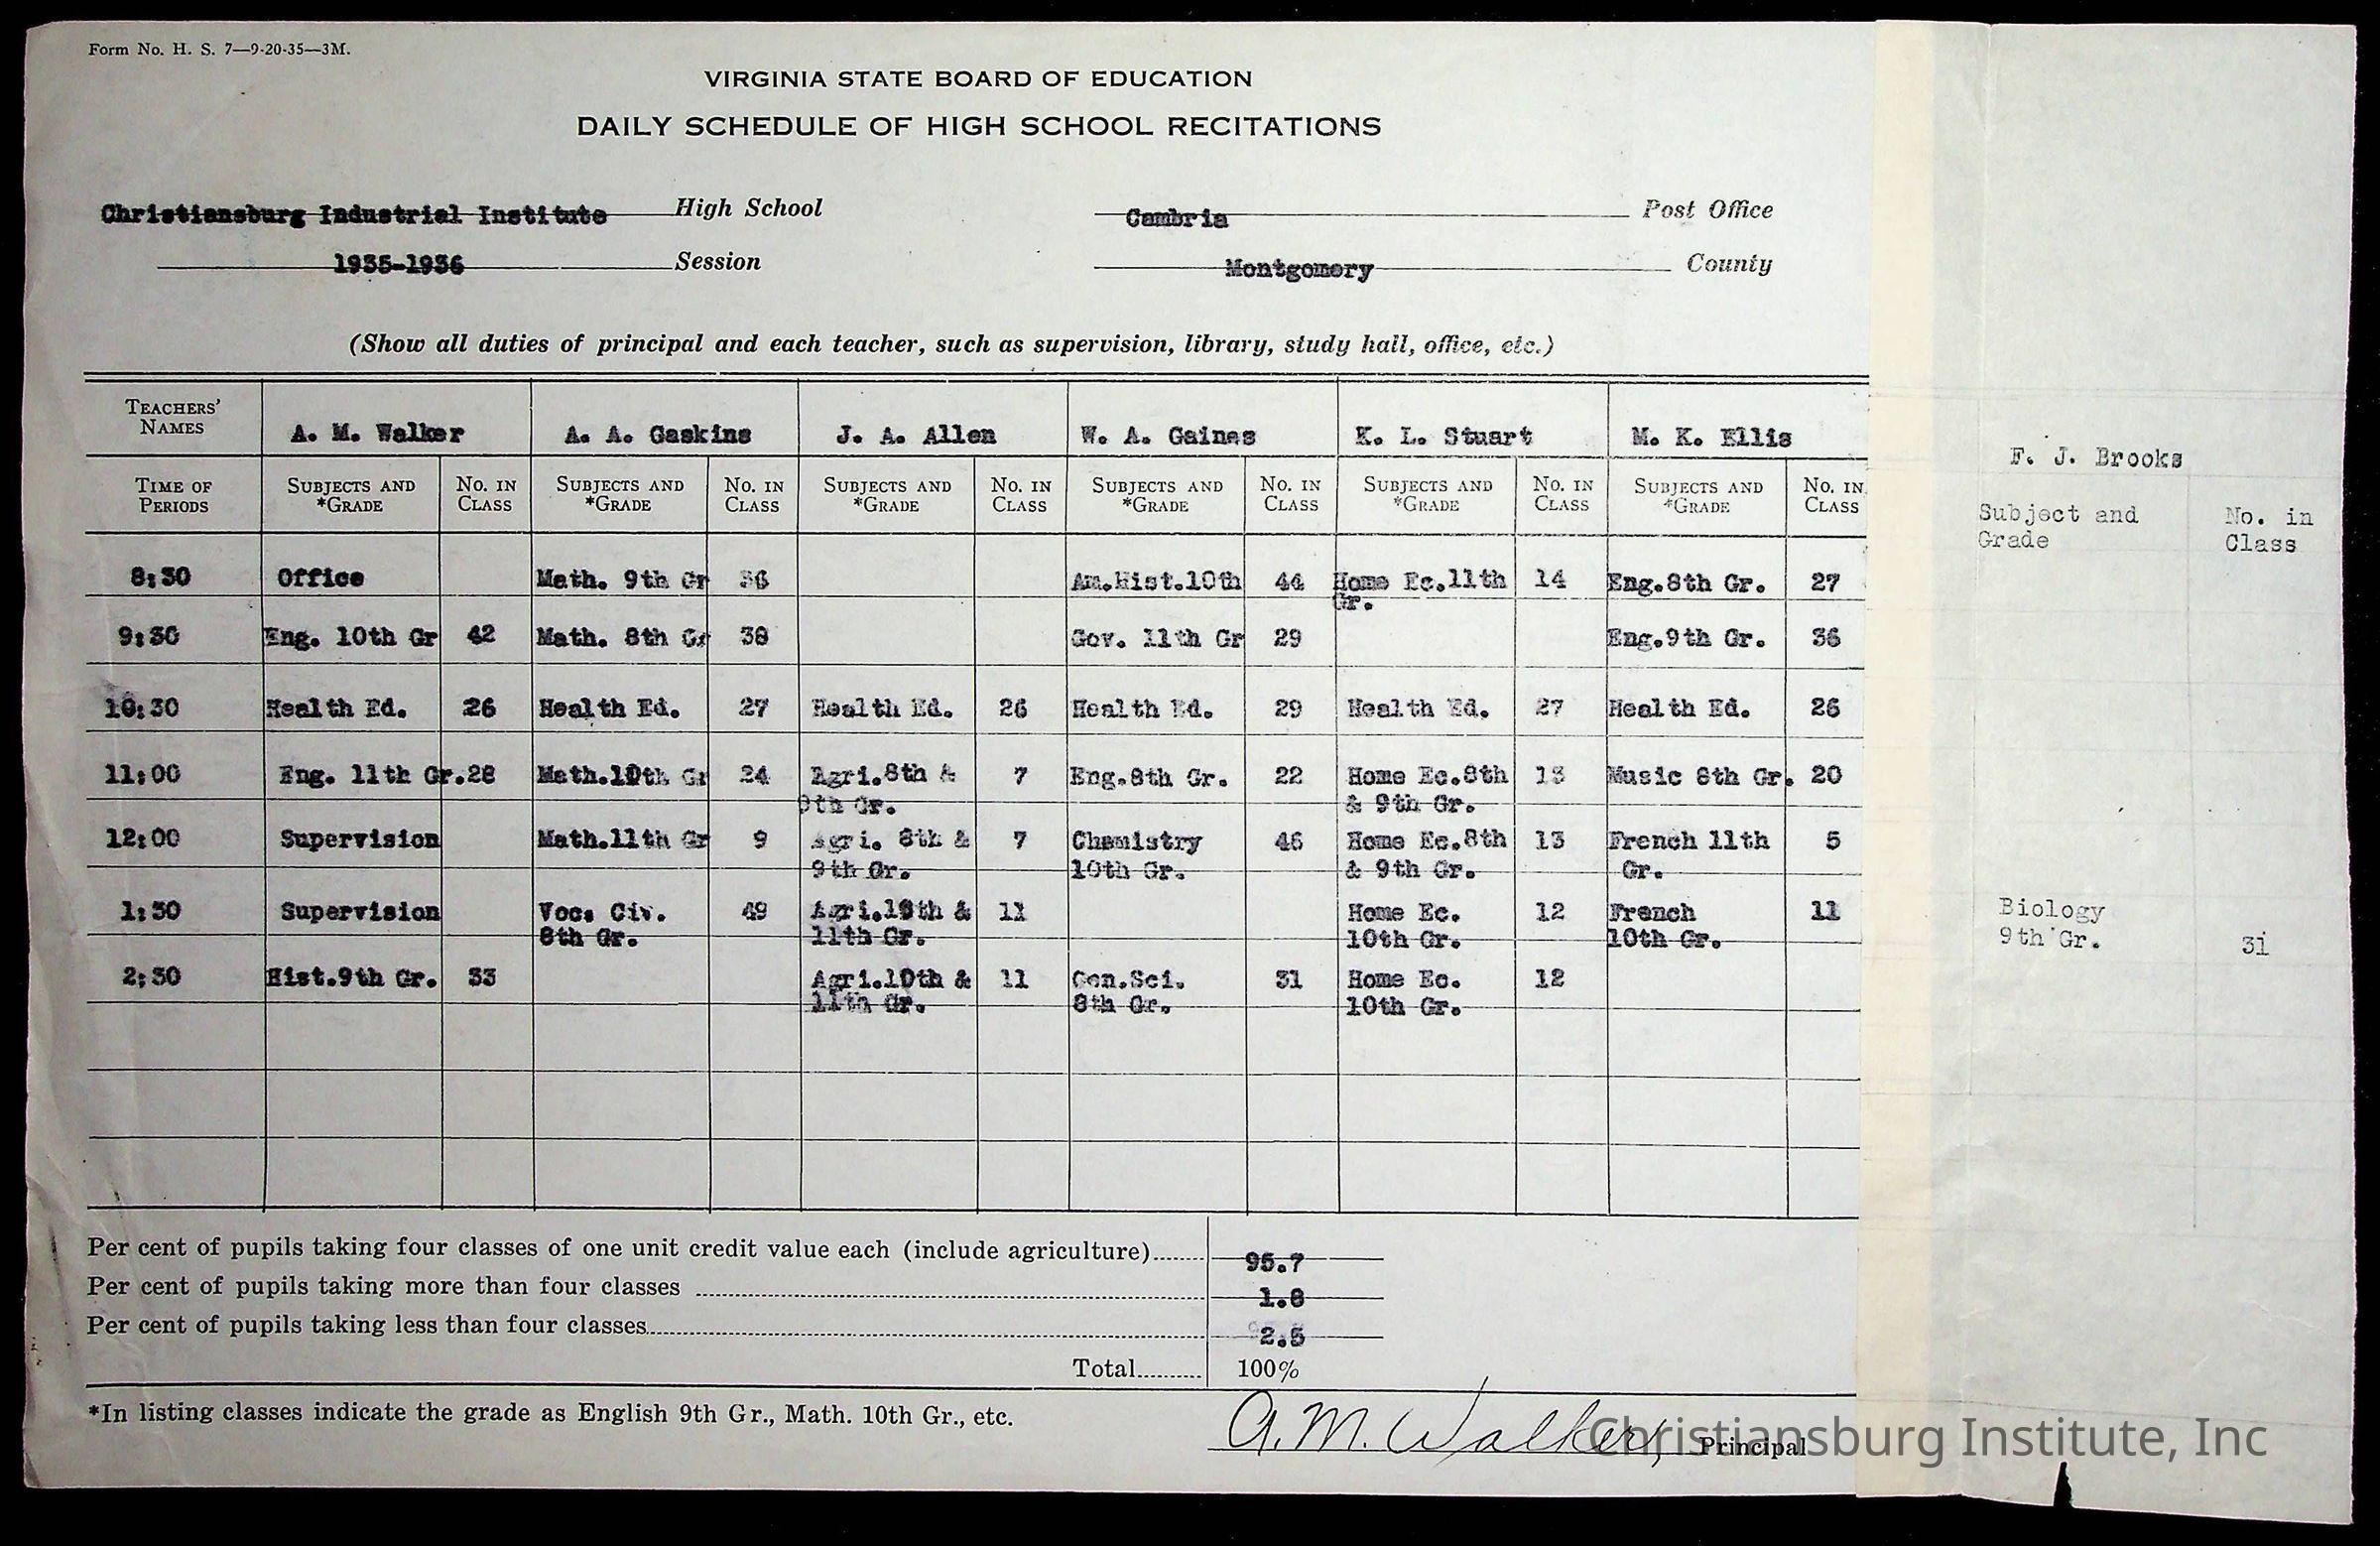 Form No. H. S. 7—9-20-35—3M.
VIRGINIA STATE BOARD OF EDUCATION
DAILY SCHEDULE OF HIGH SCHOOL RECITATIONS
Christiansburg Industrial Institute High School Cambria Post Office
1935-1936 Session Montgomery County
(Show all duties of principal and each teacher, such as supervision, library, study hall, office, etc.)
TEACHERS' NAMES A. M. Walker A. A. Gaskins J. A. Allen W. A. Gaines K. L. Stuart M. K. Ellis F. J. Brooks
TIME OF SUBJECTS AND No. IN SUBJECTS AND No. IN SUBJECTS AND No. IN SUBJECTS AND No. IN SUBJECTS AND No. IN SUBJECTS AND No. IN Subject and No. in
PERIODS *GRADE CLASS *GRADE CLASS *GRADE CLASS *GRADE CLASS *GRADE CLASS *GRADE CLASS Grade Class
8:30 Office Math. 9th Gr 36 Am.Hist.10th 44 Home Ec.11th 14 Eng.8th Gr. 27
Gr.
9:30 Eng. 10th Gr 42 Math. 8th Gr 38 Gov. 11th Gr 29 Eng.9th Gr. 36
10:30 Health Ed. 26 Health Ed. 27 Health Ed. 26 Health Ed. 29 Health Ed. 27 Health Ed. 26
11:00 Eng. 11th Gr.28 Math.10th Gr 24 Agri.8th & 7 Eng.8th Gr. 22 Home Ec.8th 13 Music 8th Gr. 20
9th Gr. & 9th Gr.
12:00 Supervision Math.11th Gr 9 Agri. 8th & 7 Chemistry 46 Home Ec.8th 13 French 11th 5
9th Gr. 10th Gr. & 9th Gr. Gr.
1:30 Supervision Voc. Civ. 49 Agri.10th & 11 Home Ec. 12 French 11 Biology
8th Gr. 11th Gr. 10th Gr. 10th Gr. 9th Gr. 31
2:30 Hist.9th Gr. 33 Agri.10th & 11 Gen.Sci. 31 Home Ec. 12
11th Gr. 8th Gr. 10th Gr.
Per cent of pupils taking four classes of one unit credit value each (include agriculture) 95.7
Per cent of pupils taking more than four classes 1.8
Per cent of pupils taking less than four classes 2.5
Total 100%
*In listing classes indicate the grade as English 9th Gr., Math. 10th Gr., etc.
A. M. Walker, Principal
Christiansburg Institute, Inc